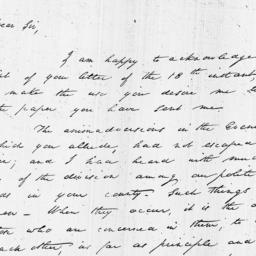 ear Sir,
I am happy to acknowledge
of your letter of the 18th instant,
make the use you desire me
paper you have sent me.
The animadversions in the Even
which you allude, had not escaped
; and I had heard with much
of the division among our polit
in your county. Such things
When they occur, it is the
who are concerned in them, to
each other, as far as principle and